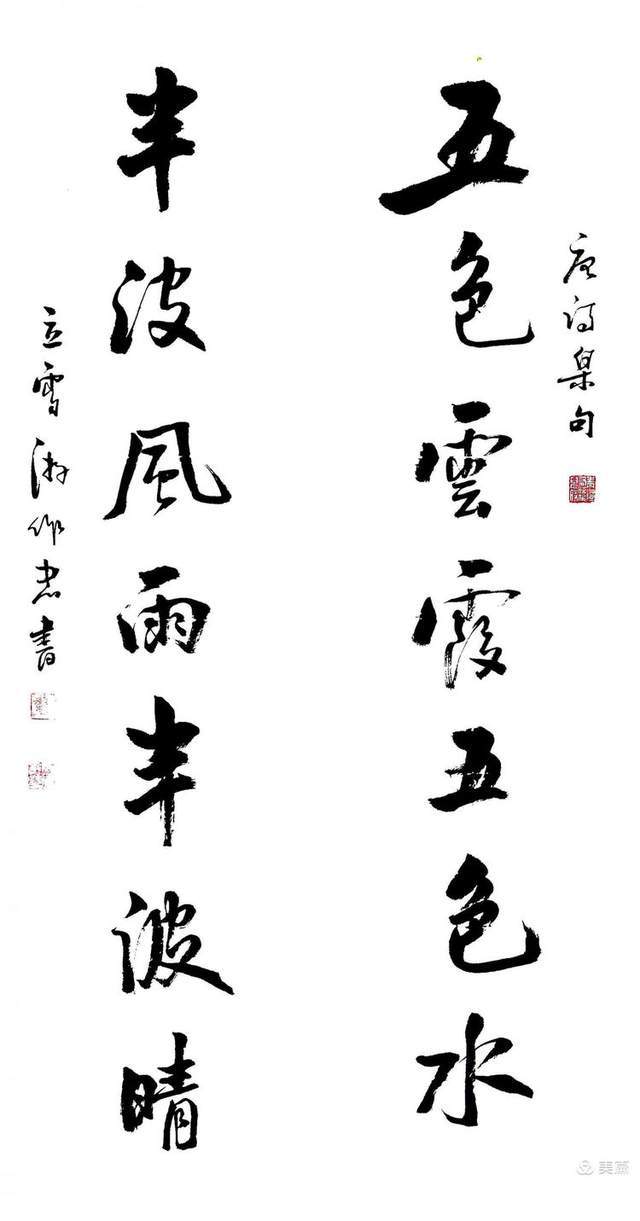 唐诗集句
五色雲霞五色水
半波風雨半波晴
立雪游作忠書
美篇